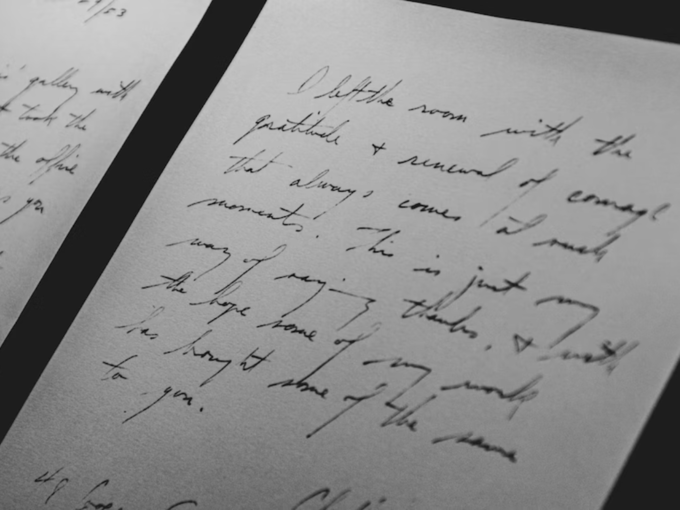 9/53
gallery with
took the
the office
you
I left the room with the
gratitude & renewal of courage
that always comes at such
moments. This is just my
way of saying thanks, & with
the hope some of my work
has brought some of the same
to you.